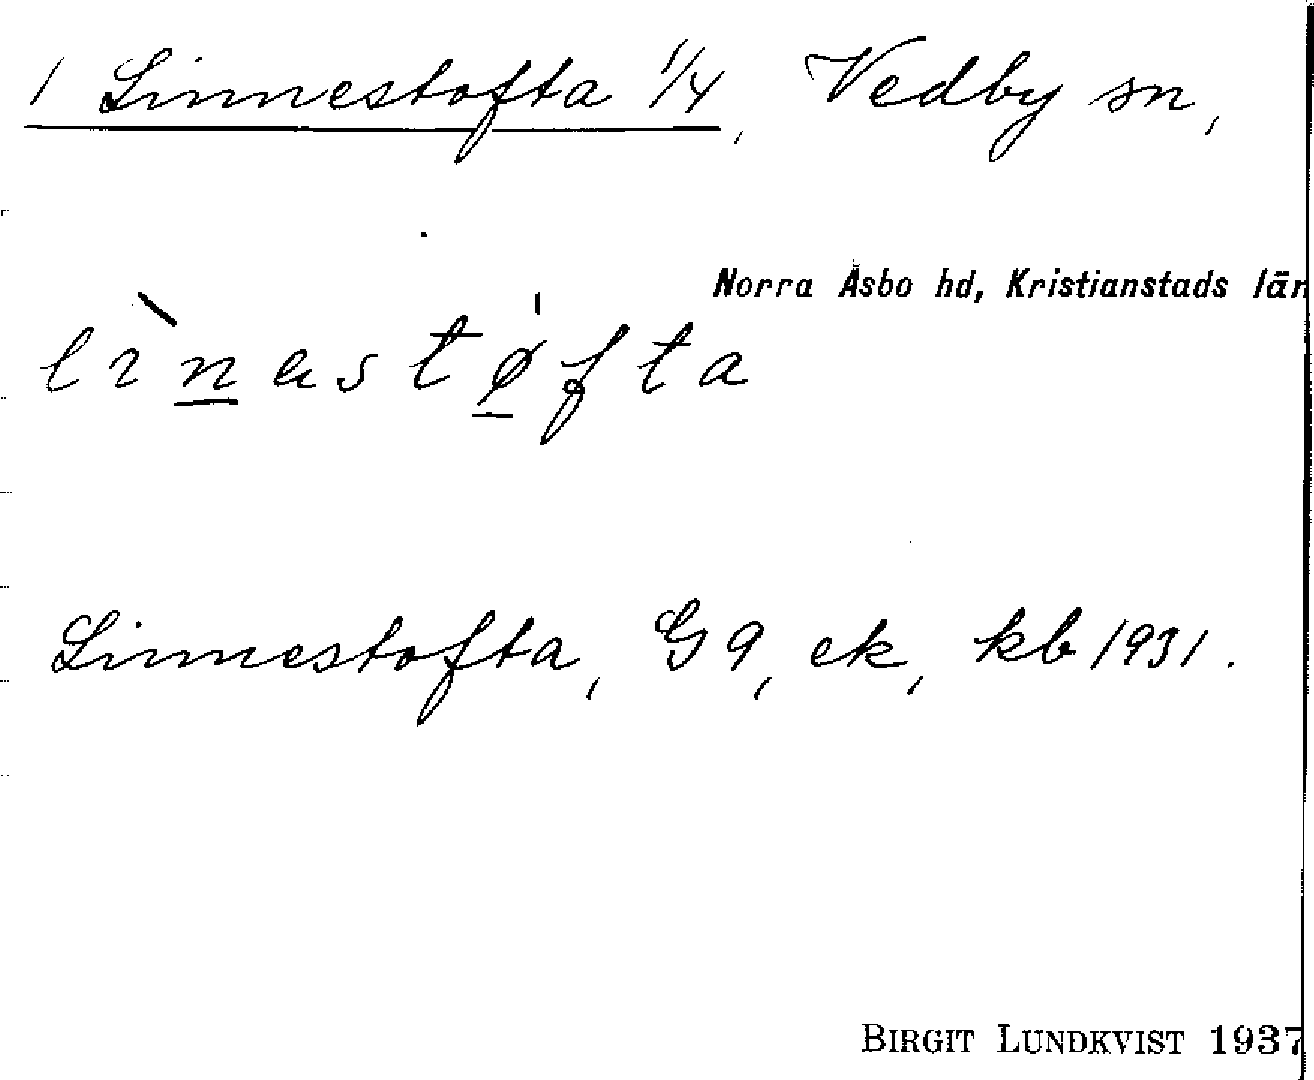 1 Linnestofta 1/4, Vedby sn,
Norra Åsbo hd, Kristianstads län
lìnastø̍fta
Linnestofta, G9, ek, kb 1931.
BIRGIT LUNDKVIST 1937